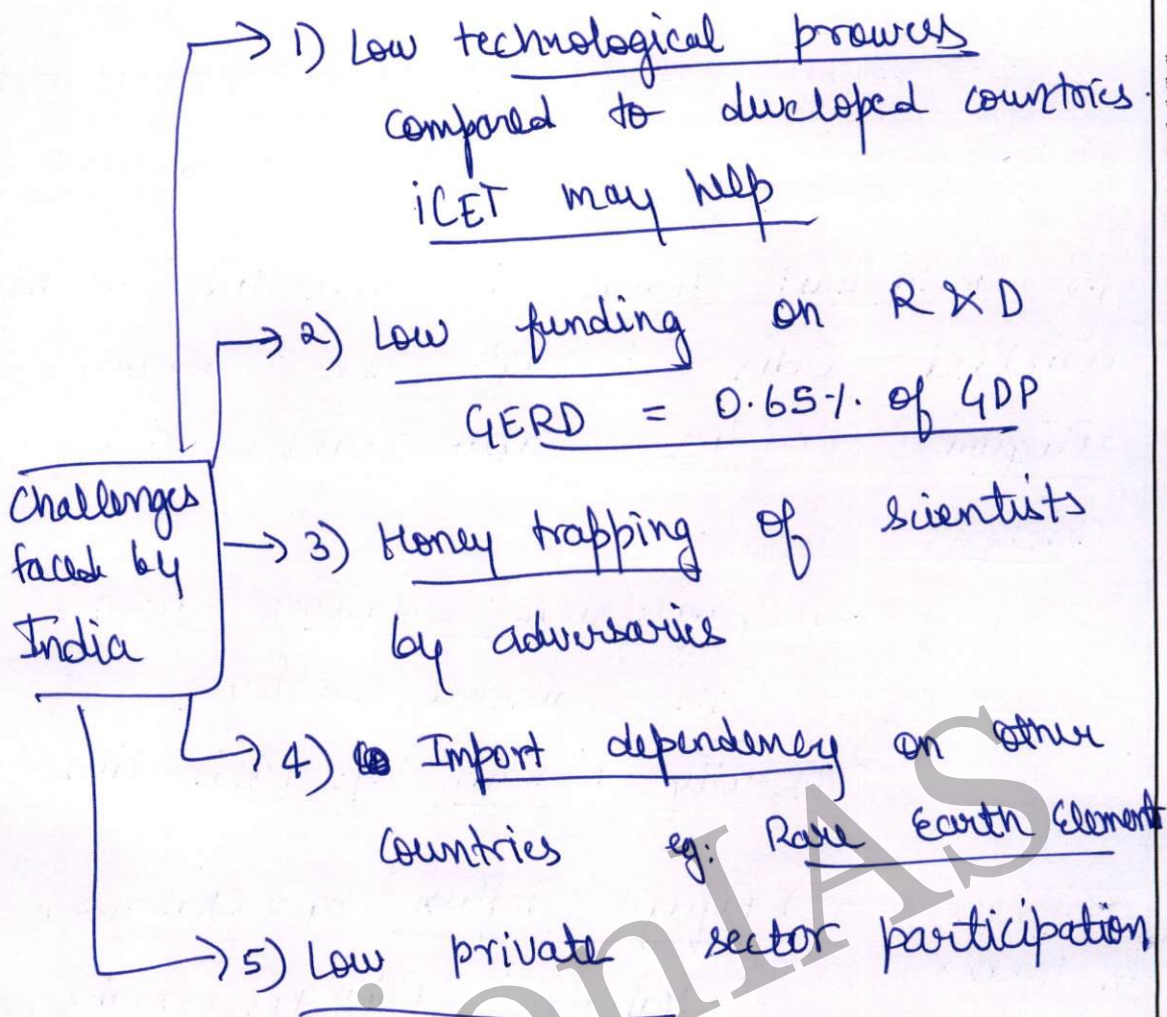 1) Low technological prowess
compared to developed countries.
iCET may help
2) Low funding on R & D
GERD = 0.65% of GDP
Challenges
faced by
India
3) Honey trapping of scientists
by adversaries
4) Import dependency on other
countries eg: Rare Earth Element
5) Low private sector participation
onIAS